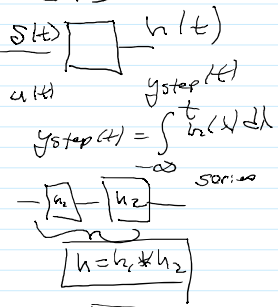 δ(t) h(t)
u(t) y_step(t)
y_step(t) = ∫_{-∞}^{t} h(λ) dλ
series
h₁ h₂
h = h₁ * h₂